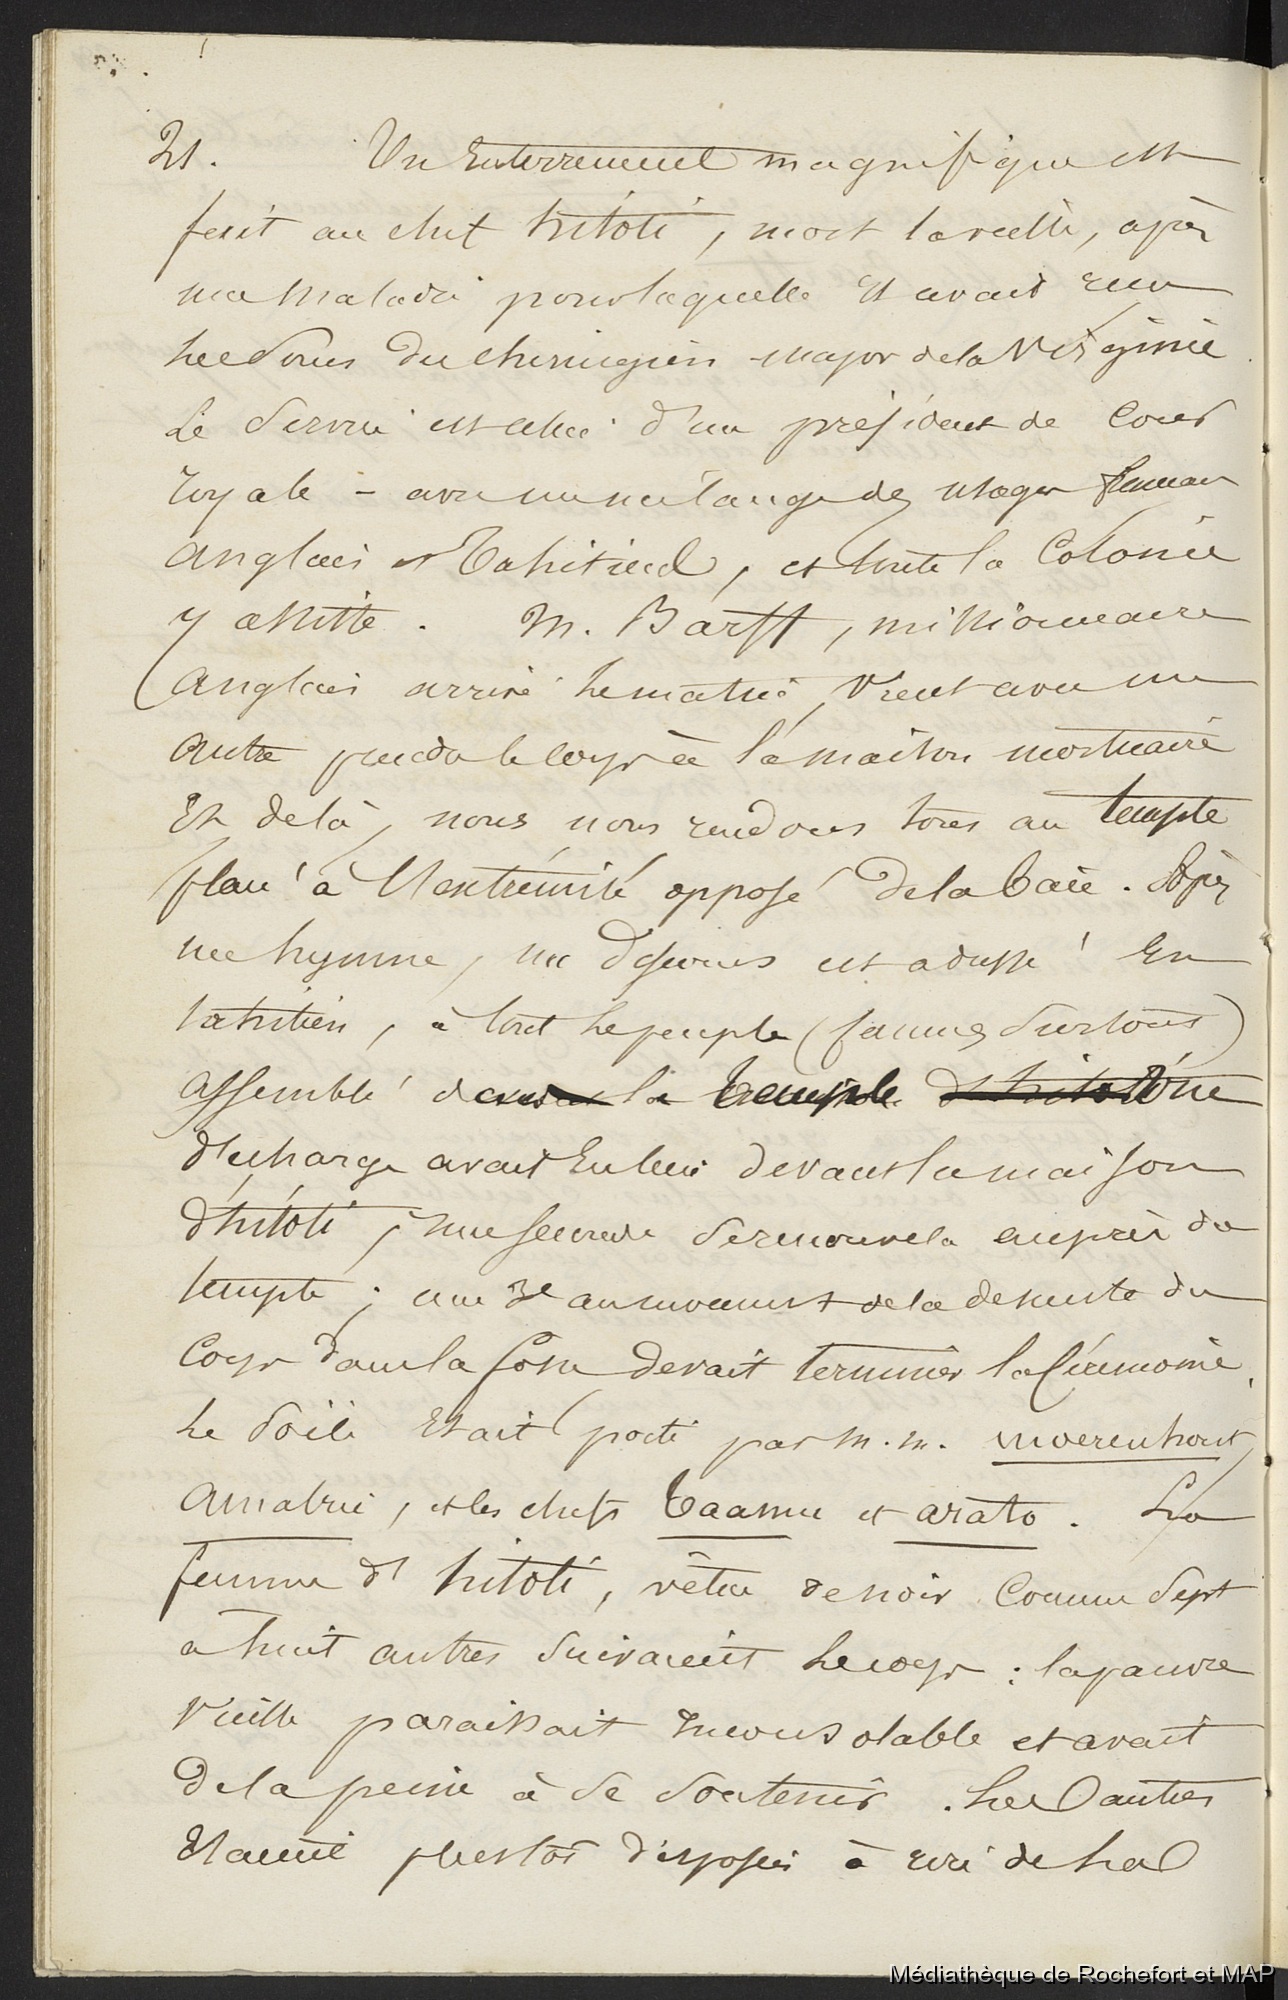 21. Un Enterrement magnifique est
fait au chef hitoti, mort la veille, après
une maladie pour laquelle il avait reçu
les soins du chirurgien major de la Virginie.
Le service est celui d'un président de Cour
royale - avec un mélange des usages
anglais et Tahitiens, et toute la Colonie
y assiste. M. Barff, missionnaire
anglais arrivé le matin, vient avec un
autre prendre le corps à la maison mortuaire
Et de là, nous nous rendons tous au temple
placé à l'extrémité opposé de la baie. Après
une hymne, un discours est adressé en
tahitien, à tout le peuple (femmes surtout)
assemblé dans le temple d'hitoti Une
décharge avait eu lieu devant la maison
d'hitoti, une seconde se renouvela auprès du
temple; une 3e au moment de la descente du
corps dans la fosse devait terminer la Cérémonie.
Le poële était porté par M.M. Moerenhout,
Amalric, et les chefs Taamu et arato. La
femme d'hitoti, vêtue de noir Comme sept
a huit autres suivaient le corps: la pauvre
vieille paraissait inconsolable et avait
de la peine à se soutenir. Les autres
étaient plustôt disposées à rire de les
Médiathèque de Rochefort et MAP